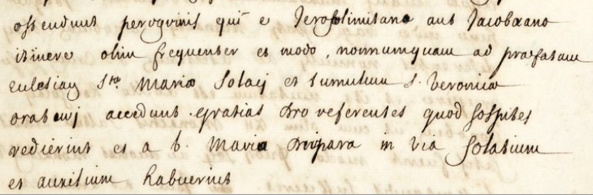 ostendunt peregrinis qui e Jerosolimitano aut Jacobeano
itinere olim frequenter et modo, nonnumquam ad præfatam
ecclesiam Sta Mariæ Solacij et tumulum S. Veronicæ
oraturi accedunt gratias Deo referentes quod sospites
redierint et a b. Maria Deipara in via solatium
et auxilium habuerint